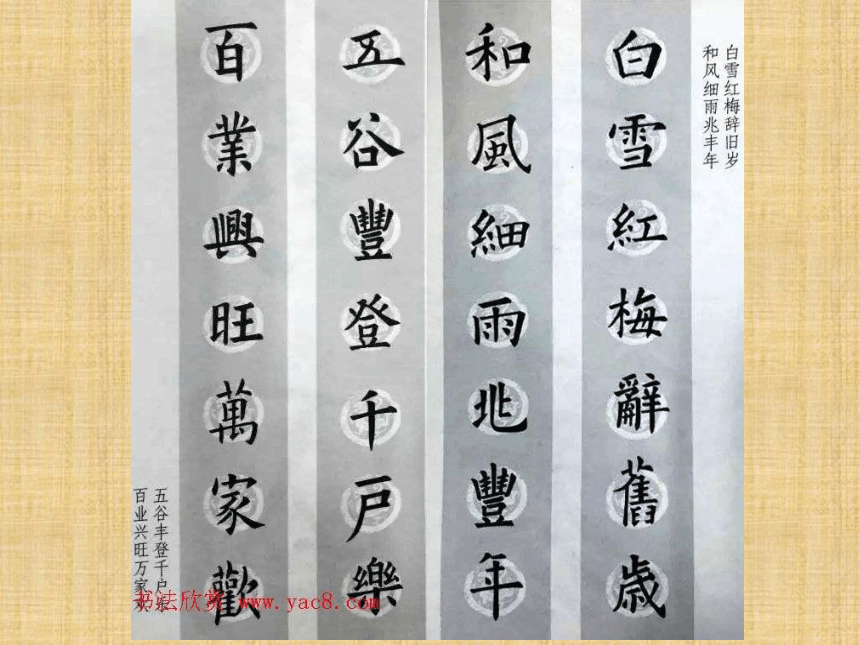 白雪红梅辞旧岁
和风细雨兆丰年
白雪紅梅辭舊歲
和風細雨兆豐年
五谷豐登千戶樂
百業興旺萬家歡
五谷丰登千户乐
百业兴旺万家欢
书法欣赏 www.yac8.com